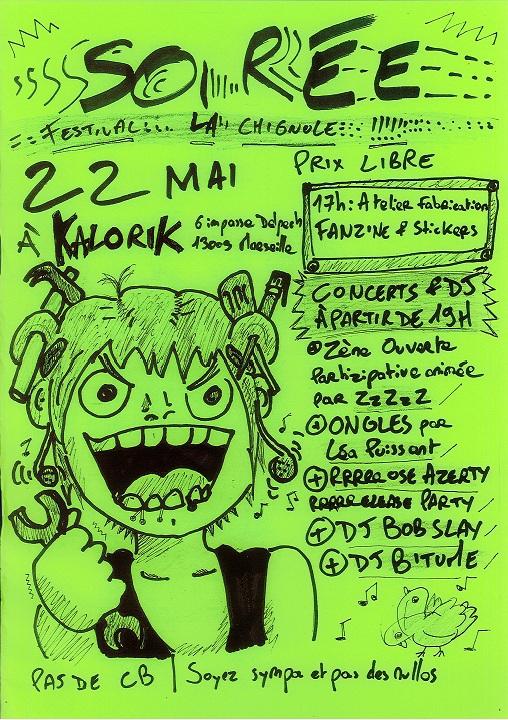 SOIRÉE
FESTIVAL LA CHIGNOLE
22 MAI
À KALORIK
6 impasse Delpech
13003 Marseille
PRIX LIBRE
17h: Atelier fabrication
FANZINE & Stickers
CONCERTS & DJ
À PARTIR DE 19H
Zène Ouverte
Participative animée
par ZzZzZ
ONGLES par
Léa Puissant
RRRRROSE AZERTY
RRRRELEASE PARTY
DJ BOB SLAY
DJ BITUME
PAS DE CB | Soyez sympa et pas des nullos